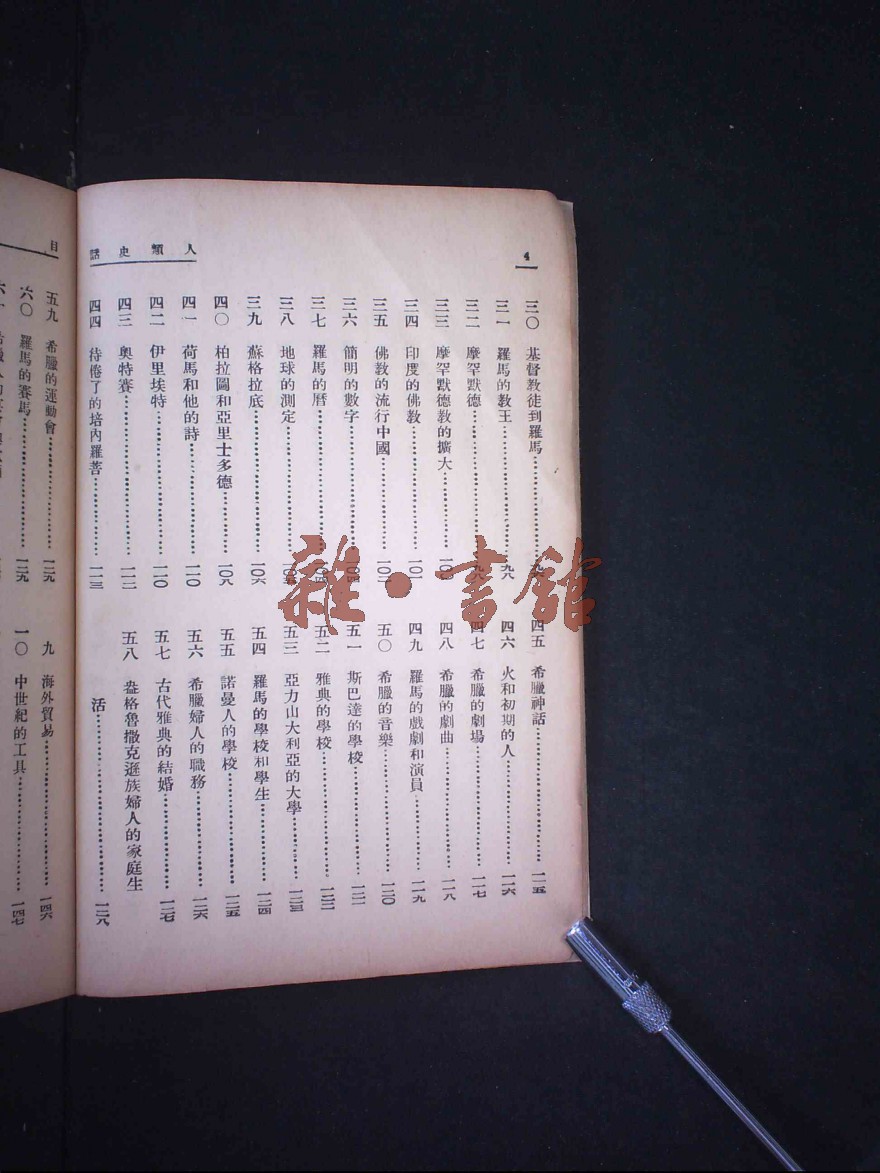 人類史話
4
三〇 基督教徒到羅馬……九六
三一 羅馬的教王……九八
三二 摩罕默德……九八
三三 摩罕默德教的擴大……
三四 印度的佛教……一〇一
三五 佛教的流行中國……
三六 簡明的數字……
三七 羅馬的曆……
三八 地球的測定……
三九 蘇格拉底……一〇六
四〇 柏拉圖和亞里士多德……一〇八
四一 荷馬和他的詩……一一〇
四二 伊里埃特……一一〇
四三 奧特賽……一一二
四四 待倦了的培內羅菩……一一三
四五 希臘神話……一一五
四六 火和初期的人……一一六
四七 希臘的劇場……一一七
四八 希臘的劇曲……一一八
四九 羅馬的戲劇和演員……一一九
五〇 希臘的音樂……一二〇
五一 斯巴達的學校……一二一
五二 雅典的學校……一二二
五三 亞力山大利亞的大學……一二三
五四 羅馬的學校和學生……一二四
五五 諾曼人的學校……一二五
五六 希臘婦人的職務……一二六
五七 古代雅典的結婚……一二七
五八 盎格魯撒克遜族婦人的家庭生
活……一二八
目
五九 希臘的運動會……一二九
六〇 羅馬的賽馬……一二九
九 海外貿易……一四六
一〇 中世紀的工具……一四七
雜·書館